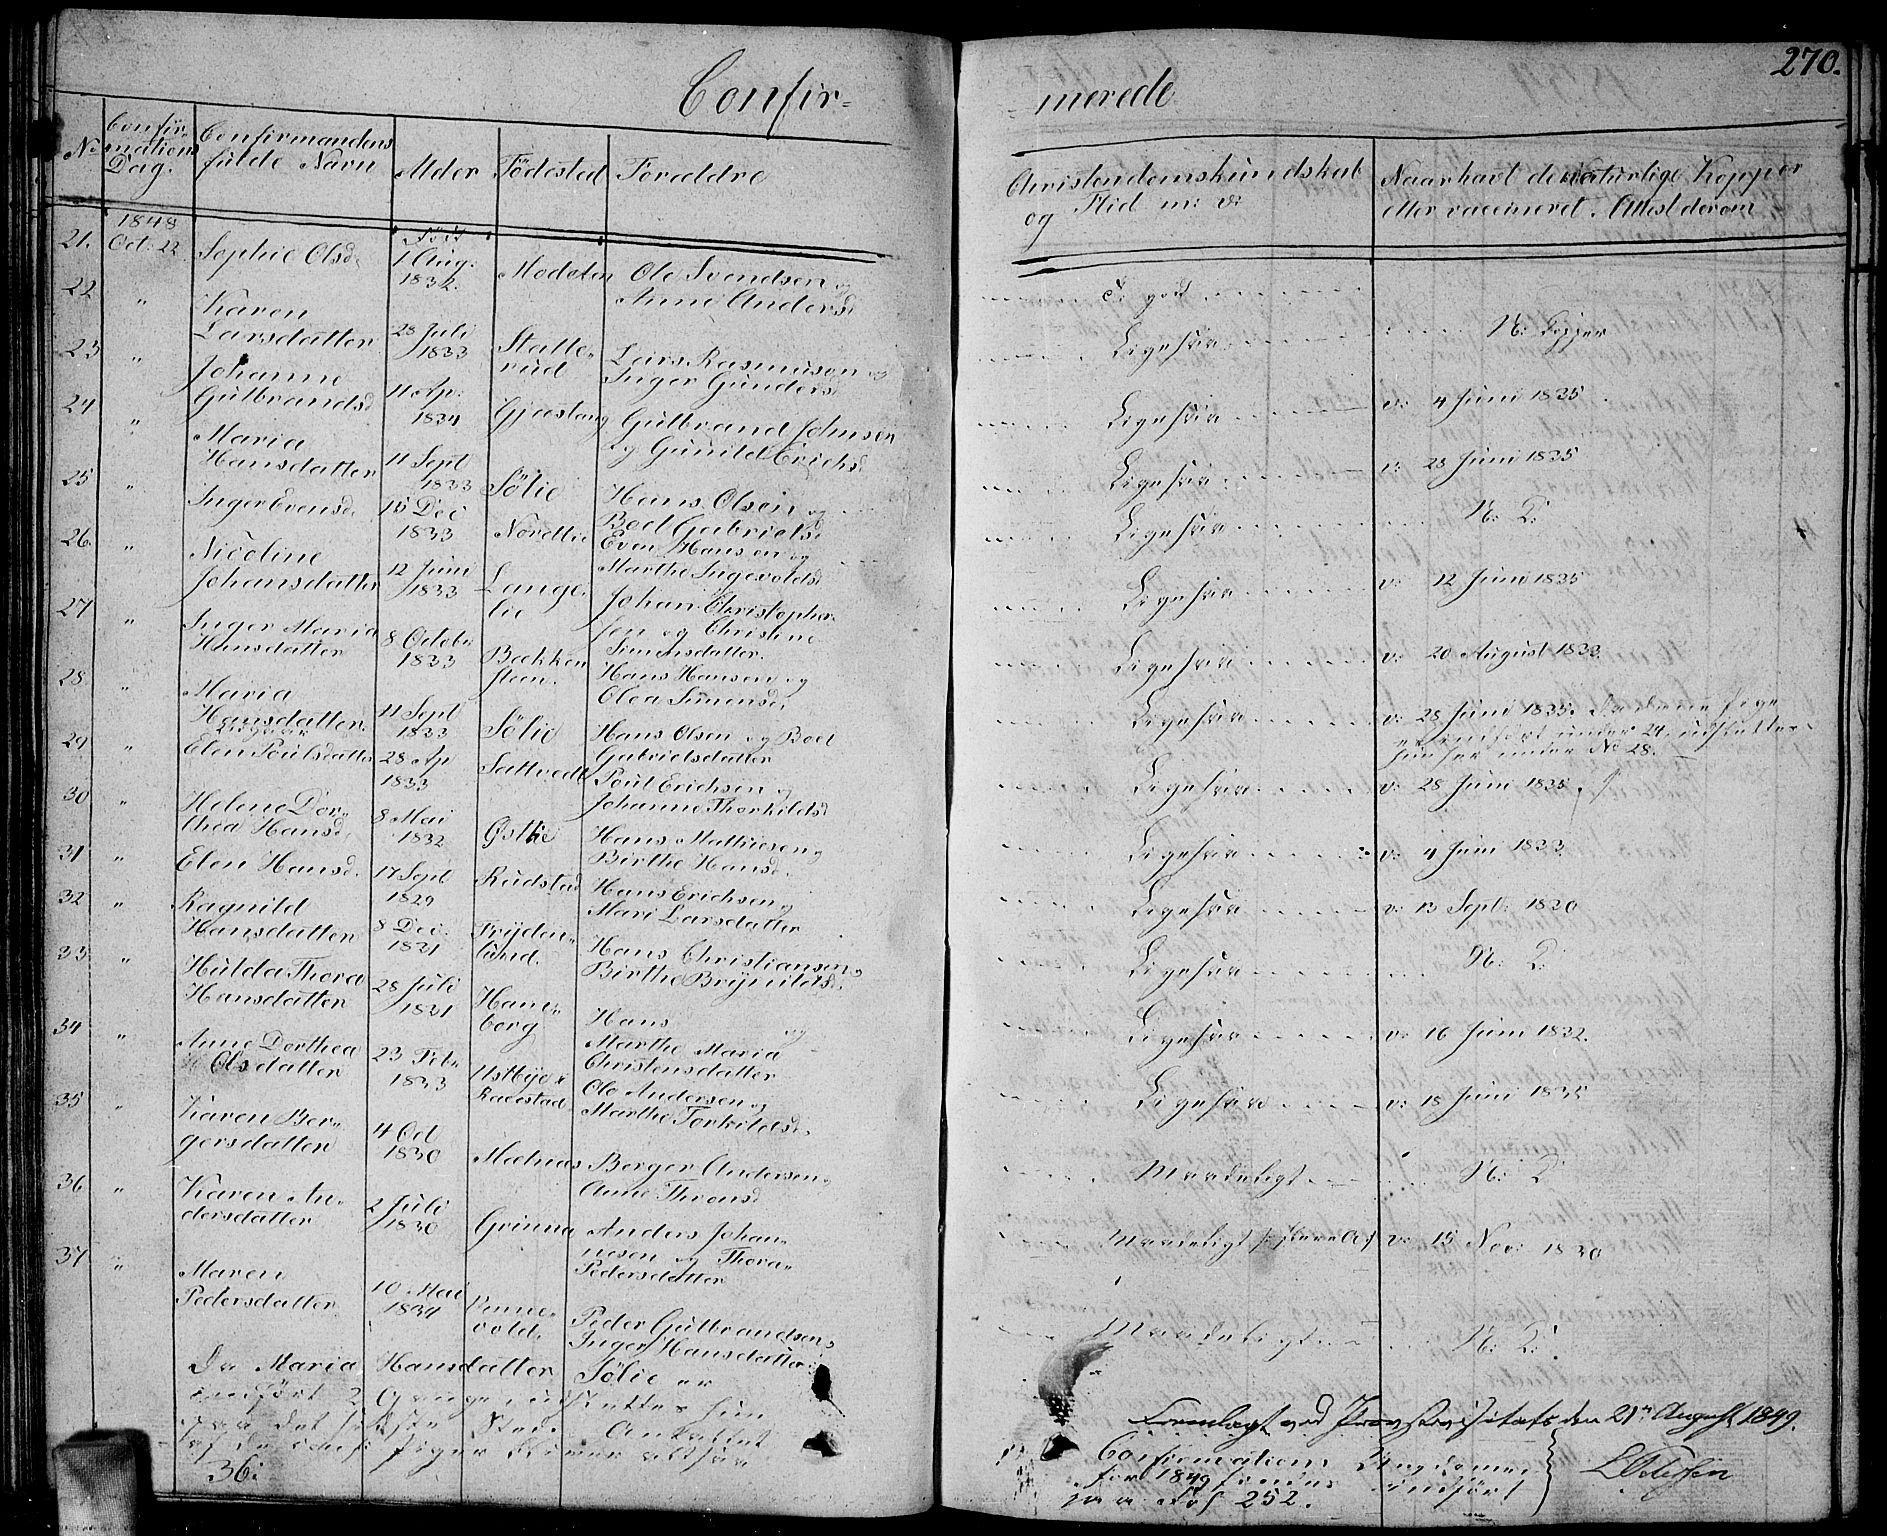 270.
Confir-
merede
No Confirmations Dag. Confirmandens fulde Navn Alder Födested Forældre Christendomskundskab og Flid m: v: Naar havt de naturlige Kopper eller vaccineret. Attest derom
1848
21. Oct. 22 Sophie Olsd. Födt 1 Aug. 1832. Ole Svendsen og Anne Andersd
22 " Karen Larsdatter 28 Juli 1833 Statterud Lars Rasmusen og Inger Gundersd Ligesaa N: Kopper
23 " Johanne Gulbrandsd 11 Ap: 1834 Gjæstang Gulbrand Johnsen og Gunild Erichsd Ligesaa v: 4 Juni 1835
24 " Maria Hansdatter 11 Sept 1833 Sølie Hans Olsen og Boel Gabrielsd Ligesaa v: 28 Juni 1835
25 " Inger Evensd. 15 Dec 1833 Nordlie Even Hansen og Marthe Ingevoldsd Ligesaa N: K:
26. " Nicoline Johansdatter 12 Juni 1833 Langelie Johan Christophersen og Christine Simensdatter. Ligesaa v: 12 Juni 1835
27 " Inger Maria Hansdatter 8 Octobr 1833 Bækkensteen. Hans Hansen og Olea Simensd. Ligesaa v: 20 August 1833
28 " Maria Hansdatter 11 Sept 1833 Sølie Hans Olsen og Boel Gabrielsdatter Ligesaa v: 28 Juni 1835. Da denne Pige er anfört under 24, udslettes hun her under No 28.
29 " Elen Poulsdatter 28 Ap 1833 Sattvedt Poul Erichsen og Johanne Thorkildsd Ligesaa v: 28 Juni 1835.
30 " Helene Dorthea Hansd. 8 Mai 1832 Østlie Hans Mathiesen og Birthe Hansd. Ligesaa v: 4 Juni 1833
31 " Elen Hansd. 17 Sept 1829 Rudstad Hans Erichsen og Mari Larsdatter Ligesaa v: 13 Sept: 1830
32 " Ragnild Hansdatter 8 Dec. 1831 Frydenlund. Hans Christiansen og Birthe Brynildsd. Ligesaa N: K:
33 " Hulda Thora Hansdatter 28 Juli 1831 Haneborg Hans og Marthe Maria Christensdatter Ligesaa v: 16 Juni 1832.
34 " Anne Dorthea Olsdatter 23 Febr 1833 Ole Andersen og Marthe Torkildsd. Ligesaa v: 18 Juni 1835
35 " Karen Bergersdatter 4 Oct 1830 Mæhnæs Berger Andersen og Anne Thronsd Maadeligt N: K:
36 " Karen Andersdatter 2 Juli 1830 Grinna Anders Johannesen og Thora Pedersdatter Maadeligt v: 15 Nov: 1830
37 " Maren Pedersdatter 10 Mai 1834 Vennevold. Peder Gulbrandsen og Inger Hansdatter Maadeligt N: K:
Da Maria Hansdatter Sølie er
anfört 2 Gange, udslettes hun
paa det sidste Sted. Antallet
af de conf: Piger bliver altsaa
36.
Fremlagt ved Provstevisitats den 21de August 1849.
Confirmations
for 1849 findes indfört
paa Fol 252.